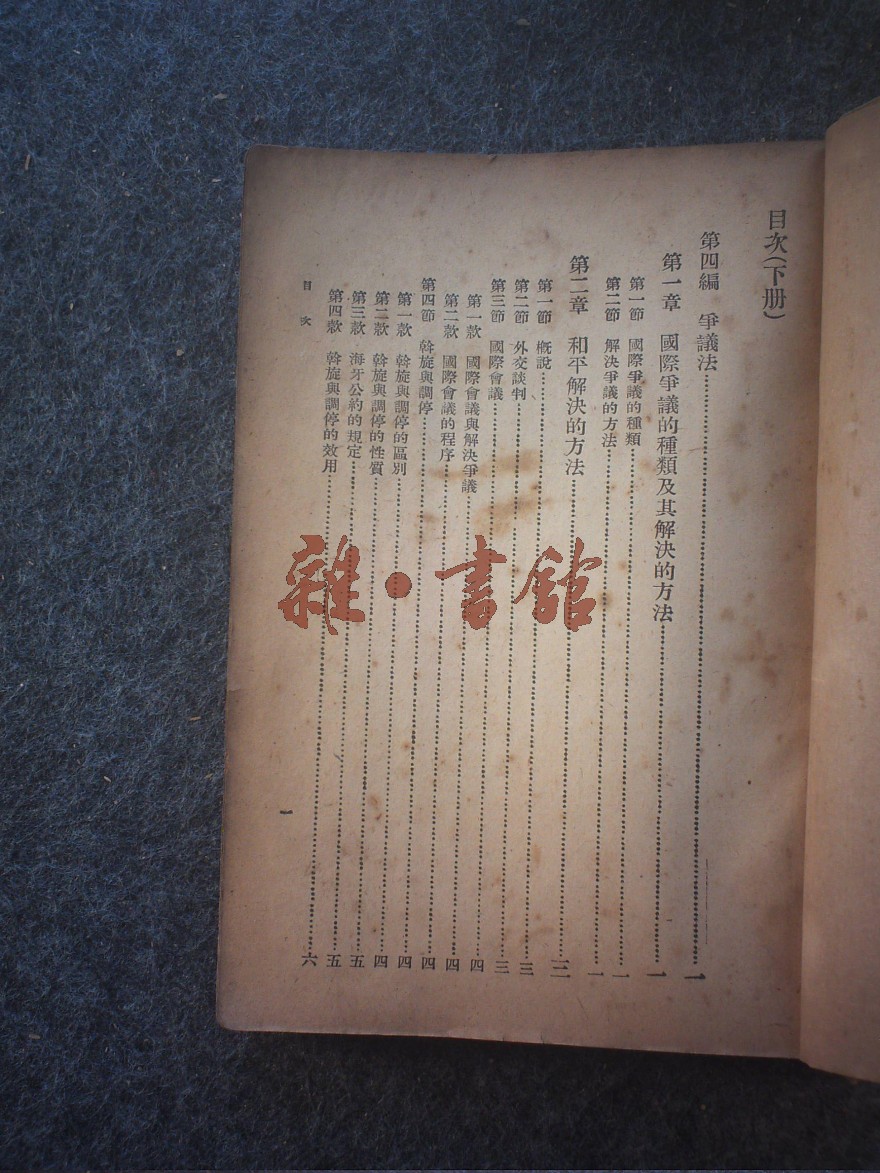 目次(下册)
第四編 爭議法……一
第一章 國際爭議的種類及其解決的方法……一
第一節 國際爭議的種類……一
第二節 解決爭議的方法……一
第二章 和平解決的方法……三
第一節 概說……三
第二節 外交談判……三
第三節 國際會議……四
第一款 國際會議與解決爭議……四
第二款 國際會議的程序……四
第四節 斡旋與調停……四
第一款 斡旋與調停的區別……四
第二款 斡旋與調停的性質……五
第三款 海牙公約的規定……五
第四款 斡旋與調停的效用……六
目次
一
雜·書館